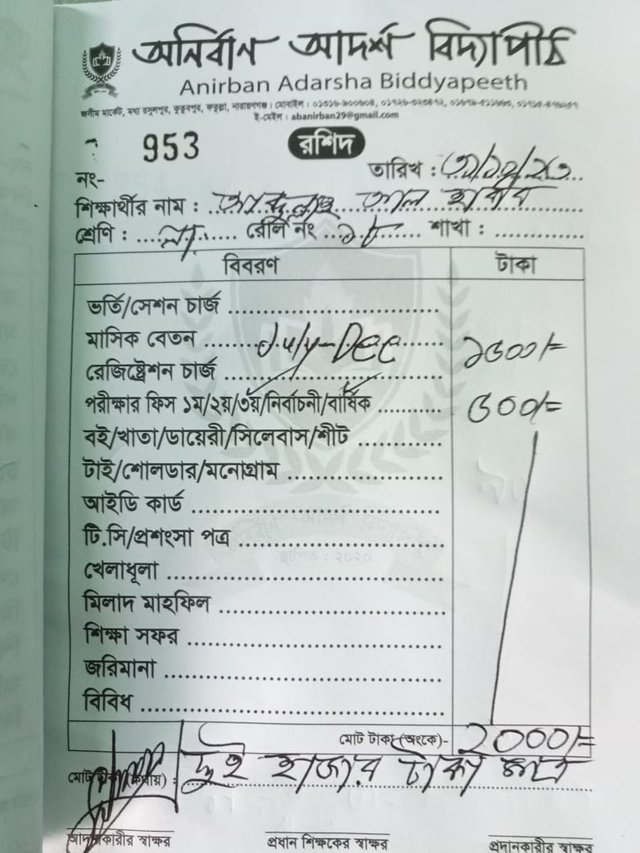 অনির্বাণ আদর্শ বিদ্যাপীঠ
Anirban Adarsha Biddyapeeth
জসীম মার্কেট, মধ্য রসুলপুর, কুতুবপুর, ফতুল্লা, নারায়ণগঞ্জ। মোবাইল :
ই-মেইল : abanirban29@gmail.com
953 রশিদ
নং- তারিখ : ৩১/১২/২৩
শিক্ষার্থীর নাম : আব্দুল্লাহ আল হাবীব
শ্রেণি : রোল নং ১৮ শাখা :
বিবরণ টাকা
ভর্তি/সেশন চার্জ
মাসিক বেতন July-Dec ১৫০০/=
রেজিষ্ট্রেশন চার্জ
পরীক্ষার ফিস ১ম/২য়/৩য়/নির্বাচনী/বার্ষিক ৫০০/=
বই/খাতা/ডায়েরী/সিলেবাস/শীট
টাই/শোলডার/মনোগ্রাম
আইডি কার্ড
টি.সি/প্রশংসা পত্র
খেলাধূলা
মিলাদ মাহফিল
শিক্ষা সফর
জরিমানা
বিবিধ
মোট টাকা (অংকে)- 2000/=
মোট টাকা (কথায়) : দুই হাজার টাকা মাত্র
আদায়কারীর স্বাক্ষর প্রধান শিক্ষকের স্বাক্ষর প্রদানকারীর স্বাক্ষর